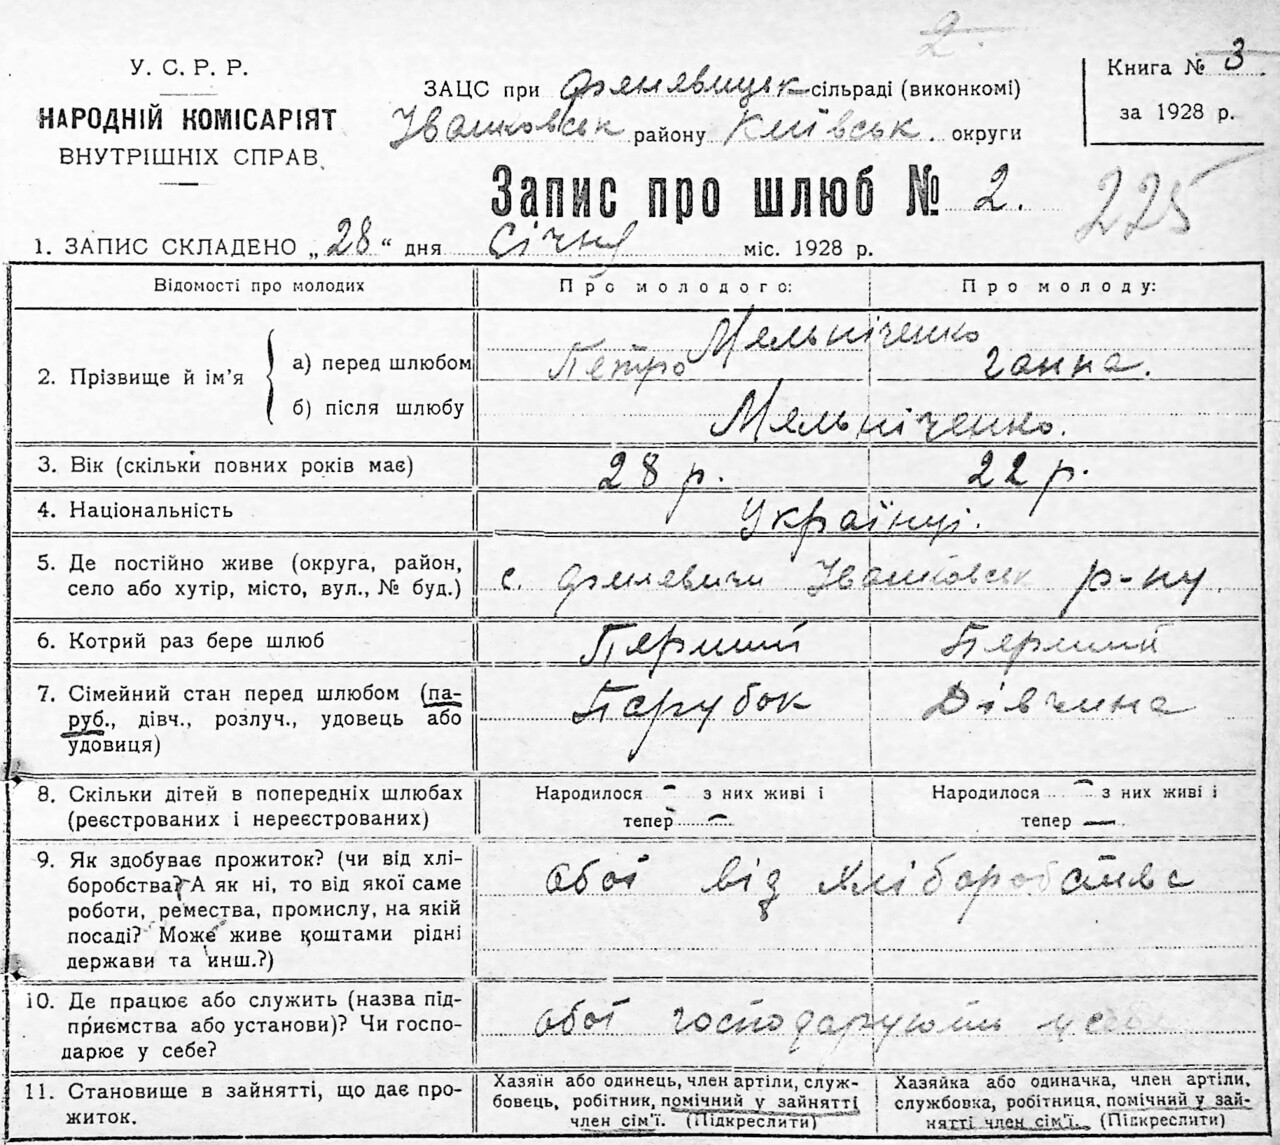 2.
У. С. Р. Р.
НАРОДНІЙ КОМІСАРІЯТ
ВНУТРІШНІХ СПРАВ.
ЗАЦС при сільраді (виконкомі)
Іванковськ району Київськ. округи
Книга № 3.
за 1928 р.
Запис про шлюб № 2.
225
1. ЗАПИС СКЛАДЕНО „28“ дня Січня міс. 1928 р.
Відомості про молодих
Про молодого:
Про молоду:
2. Прізвище й ім’я
а) перед шлюбом
Мельніченко
Петро
Ганна.
б) після шлюбу
Мельніченко.
3. Вік (скільки повних років має)
28 р.
22 р.
4. Національність
Українці.
5. Де постійно живе (округа, район,
село або хутір, місто, вул., № буд.)
с. Іванковськ р-ну
6. Котрий раз бере шлюб
Перший
Перший
7. Сімейний стан перед шлюбом (па-
руб., дівч., розлуч., удовець або
удовиця)
Парубок
Дівчина
8. Скільки дітей в попередніх шлюбах
(реєстрованих і нереєстрованих)
Народилося — з них живі і
тепер —
Народилося — з них живі і
тепер —
9. Як здобуває прожиток? (чи від хлі-
боробства? А як ні, то від якої саме
роботи, ремества, промислу, на якій
посаді? Може живе коштами рідні
держави та инш.?)
обої від хліборобства
10. Де працює або служить (назва під-
приємства або установи)? Чи госпо-
дарює у себе?
обої господарують у себе
11. Становище в зайнятті, що дає про-
житок.
Хазяїн або одинець, член артіли, служ-
бовець, робітник, помічний у зайнятті
член сім’ї. (Підкреслити)
Хазяйка або одиначка, член артіли,
службовка, робітниця, помічний у зай-
нятті член сім’ї. (Підкреслити)